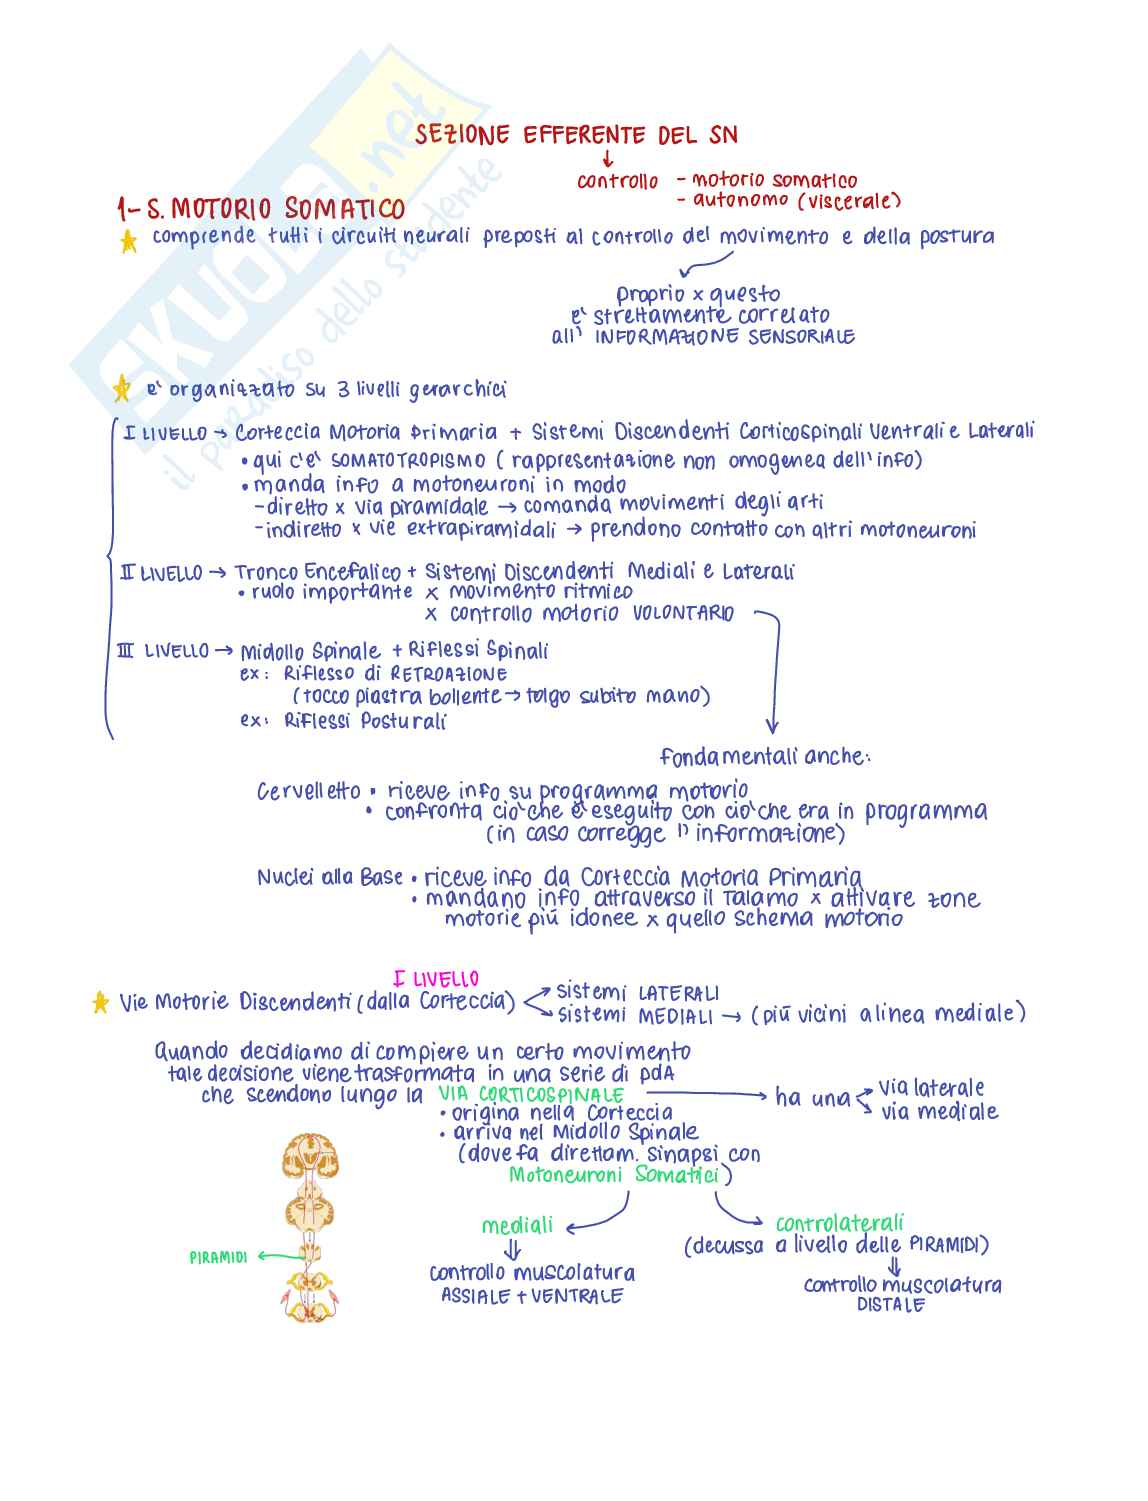 SKUOLA.net
il paradiso dello studente
SEZIONE EFFERENTE DEL SN
↓
controllo - motorio somatico
- autonomo (viscerale)
1- S. MOTORIO SOMATICO
comprende tutti i circuiti neurali preposti al controllo del movimento e della postura
proprio x questo
e' strettamente correlato
all' INFORMAZIONE SENSORIALE
e' organizzato su 3 livelli gerarchici
I LIVELLO → Corteccia Motoria Primaria + Sistemi Discendenti Corticospinali Ventrali e Laterali
• qui c'e' SOMATOTROPISMO ( rappresentazione non omogenea dell'info)
• manda info a motoneuroni in modo
- diretto x via piramidale → comanda movimenti degli arti
- indiretto x vie extrapiramidali → prendono contatto con altri motoneuroni
II LIVELLO → Tronco Encefalico + Sistemi Discendenti Mediali e Laterali
• ruolo importante x movimento ritmico
x controllo motorio VOLONTARIO
III LIVELLO → Midollo Spinale + Riflessi Spinali
ex: Riflesso di RETROAZIONE
(tocco piastra bollente → tolgo subito mano)
ex: Riflessi Posturali
fondamentali anche:
Cervelletto • riceve info su programma motorio
• confronta ciò che è eseguito con ciò che era in programma
(in caso corregge l'informazione)
Nuclei alla Base • riceve info da Corteccia Motoria Primaria
• mandano info attraverso il Talamo x attivare zone
motorie più idonee x quello schema motorio
I LIVELLO
Vie Motorie Discendenti (dalla Corteccia)
sistemi LATERALI
sistemi MEDIALI → (più vicini a linea mediale)
Quando decidiamo di compiere un certo movimento
tale decisione viene trasformata in una serie di pdA
che scendono lungo la VIA CORTICOSPINALE → ha una
via laterale
via mediale
• origina nella Corteccia
• arriva nel Midollo Spinale
(dove fa direttam. sinapsi con
Motoneuroni Somatici)
mediali
controlaterali
(decussa a livello delle PIRAMIDI)
PIRAMIDI
controllo muscolatura
ASSIALE + VENTRALE
controllo muscolatura
DISTALE